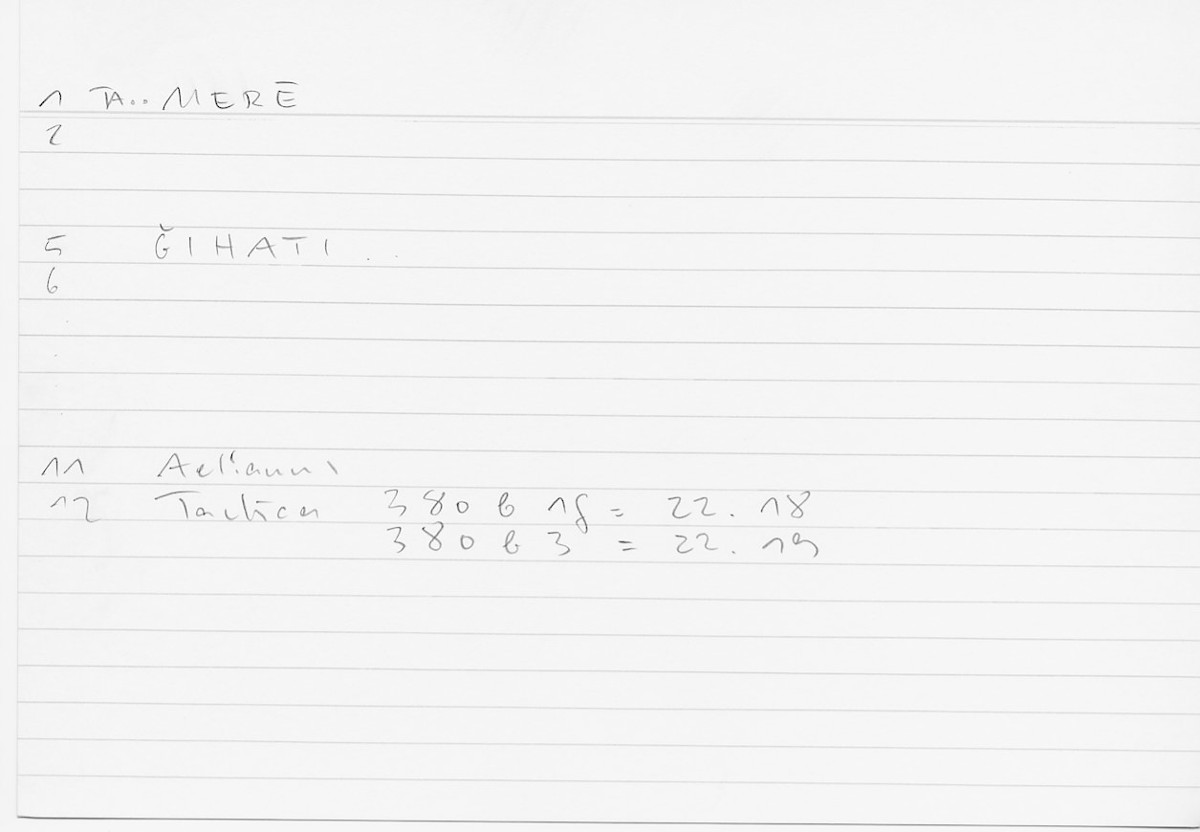 1 TA.. MERĒ
2
5 ĞIHATI ..
6
11 Aelianus
12 Tactica 380 b 1f = 22. 18
380 b 3 = 22. 19